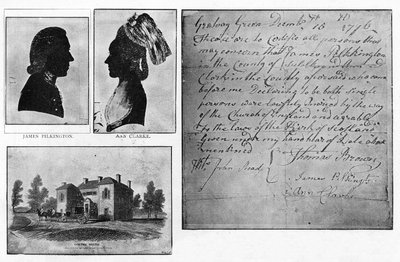 JAMES PILKINGTON.
ANN CLARKE.
Gretney Green Decmbr 13 1776
These are to Certify all persons that
may concern that James Pilkington
in the County of and Ann
Clark in the County aforesaid came
before me Declairing to be both single
persons were lawfully married by the way
of the Church of England and agreable
to the laws of the Kirk of Scotland
Given under my hand day of Date above
mentined
Thomas Brown
John
James Pilkington
Ann Clarke